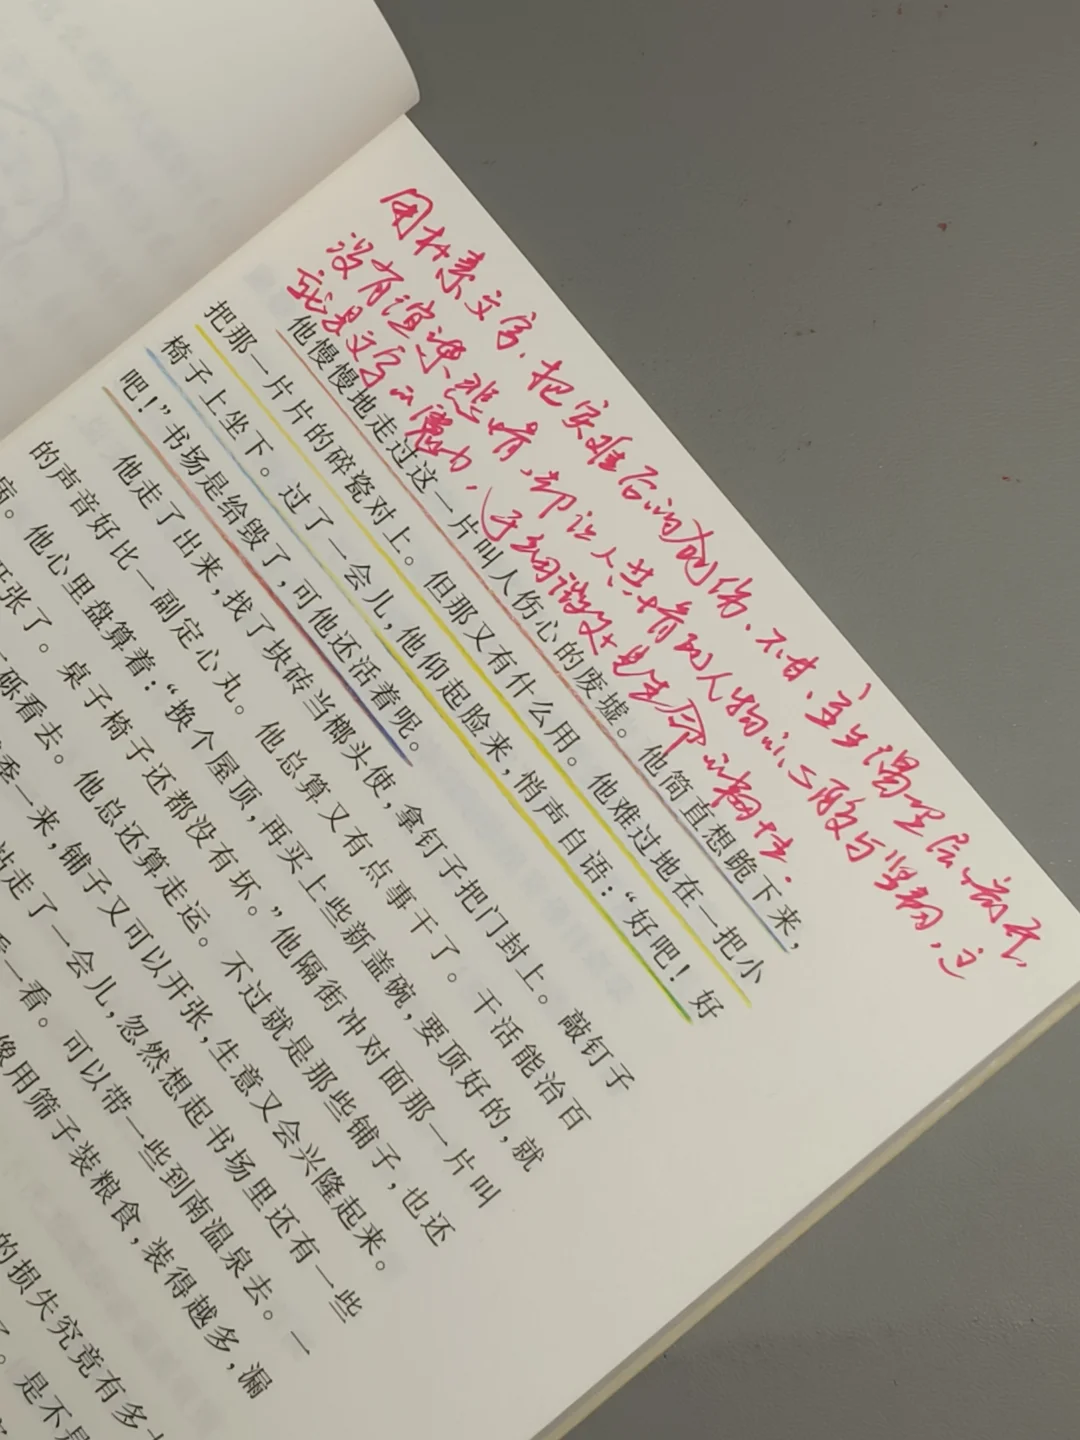 用朴素文字、把灾难后的悲伤、不甘、
没有渲染悲情、却让人共情到人物的心酸与坚韧，这
就是文字的魔力，
他慢慢地走过这一片叫人伤心的废墟。他简直想跪下来，
把那一片片的碎瓷对上。但那又有什么用。他难过地在一把小
椅子上坐下。过了一会儿，他仰起脸来，悄声自语：“好吧！好
吧！”书场是给毁了，可他还活着呢。
他走了出来，找了块砖当榔头使，拿钉子把门封上。敲钉子
的声音好比一副定心丸。他总算又有点事干了。干活能治百
病。他心里盘算着：“换个屋顶，再买上些新盖碗，要顶好的，就
开张了。桌子椅子还都没有坏。”他隔街冲对面那一片叫
砾看去。他总还算走运。不过就是那些铺子，也还
一来，铺子又可以开张，生意又会兴隆起来。
走了一会儿，忽然想起书场里还有一些
看一看。可以带一些到南温泉去。一
像用筛子装粮食，装得越多，漏
的损失究竟有多
了。是不是